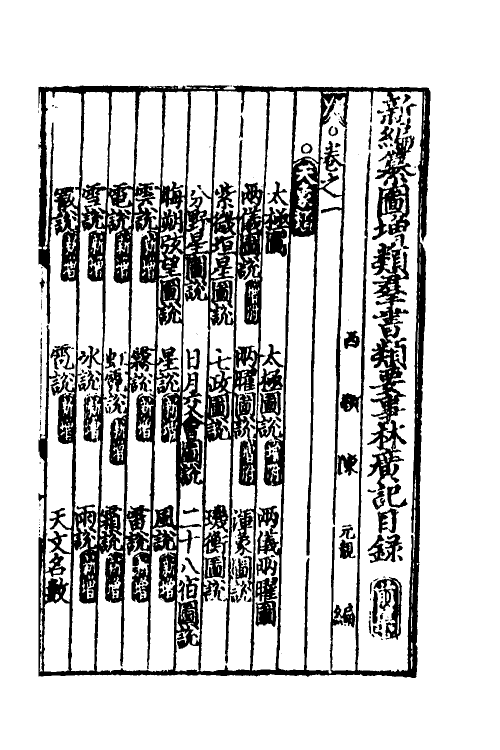 新編纂圖增類羣書類要事林廣記目錄 前集
西 穎 陳 元靚 編
甲
卷之一
天象類
太極圖 太極圖說 新增 兩儀兩曜圖
兩儀圖說 新增 兩曜圖說 新增 渾象圖說
紫微垣星圖說 七政圖說 璣衡圖說
分野星圖說 日月交會圖說 二十八宿圖說
晦朔弦望圖說 星說 新增 風說 新增
雲說 新增 霧說 新增 雷說 新增
電說 新增 虹蜺說 新增 霜說 新增
雪說 新增 冰說 新增 雨說 新增
霰說 新增 雹說 新增 天文名數